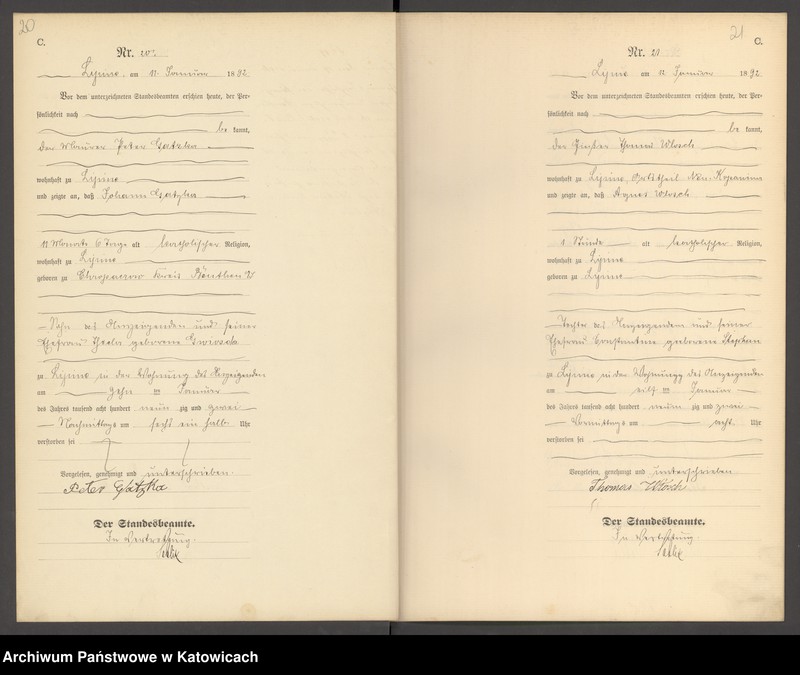 20
C.
Nr. 20.
Lipine am 12 Januar 1892
Vor dem unterzeichneten Standesbeamten erschien heute, der Per-
sönlichkeit nach
be kannt,
der Maurer Peter Gatzka
wohnhaft zu Lipine
und zeigte an, daß Johann Gatzka
Monate 6 Tage alt katholischer Religion,
wohnhaft zu Lipine
geboren zu Chropaczow Kreis Beuthen
Sohn des Anzeigenden und seiner
Ehefrau Thecla geborene
zu Lipine in der Wohnung des Anzeigenden
am zehn ten Januar
des Jahres tausend acht hundert neun zig und zwei
Nachmittags um sechs ein halb Uhr
verstorben sei
Vorgelesen, genehmigt und unterschrieben.
Peter Gatzka
Der Standesbeamte.
In Vertretung.
21
C.
Nr. 21
Lipine am 12 Januar 1892
Vor dem unterzeichneten Standesbeamten erschien heute, der Per-
sönlichkeit nach
be kannt,
der Thomas Wlosch
wohnhaft zu Lipine, Ortstheil
und zeigte an, daß Agnes Wlosch
1 Stunde alt katholischer Religion,
wohnhaft zu Lipine
geboren zu Lipine
Tochter des Anzeigenden und seiner
Ehefrau Constantine geborene Stephan
zu Lipine in der Wohnung des Anzeigenden
am elf ten Januar
des Jahres tausend acht hundert neun zig und zwei
Vormittags um acht Uhr
verstorben sei
Vorgelesen, genehmigt und unterschrieben
Thomas Wlosch
Der Standesbeamte.
In Vertretung.
Archiwum Państwowe w Katowicach